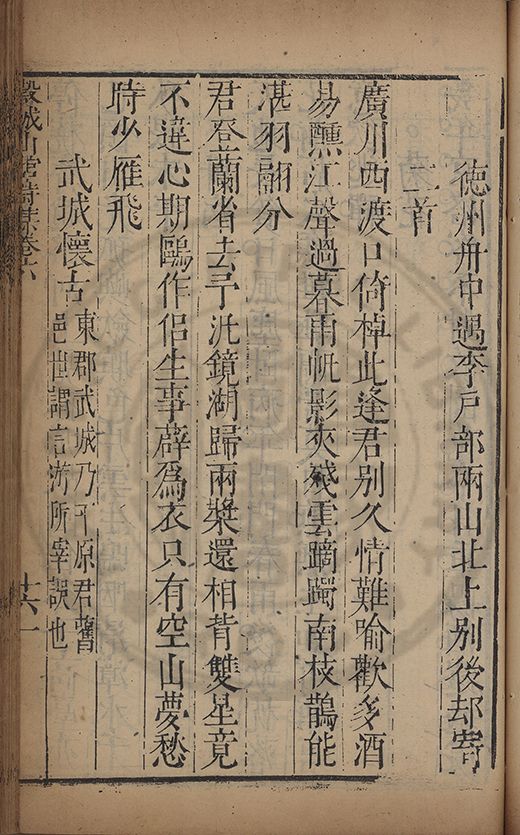 德州舟中遇李戶部兩山北上别後却寄
二首
廣川西渡口倚棹此逢君别久情難喻歡多酒
易醺江聲過暮雨帆影夾殘雲躑躅南枝鵲能
湛羽翮分
君登蘭省去予汎鏡湖歸兩槳還相背雙星竟
不違心期鷗作侣生事薜為衣只有空山夢愁
時少雁飛
武城懷古東郡武城乃平原君舊
邑世謂言游所宰誤也
榖城山館詩集卷六